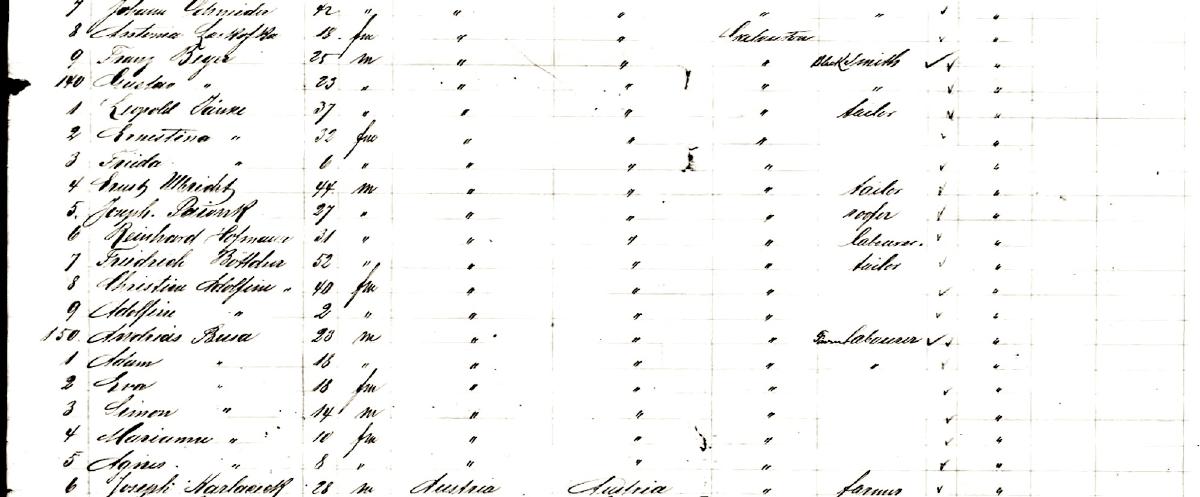 7 Johann Schneider 42 " " " " " "
8 Antonia 18 fm " " Galveston "
9 Franz Beyer 25 m " " " Blacksmith "
140 Gustav " 23 " " " " " "
1 Leopold Jänke 37 " " " " tailor "
2 Ernestina " 32 fm " " " "
3 Frieda " 6 " " " " "
4 Ernst Ulbricht 44 m " " " tailor "
5. Joseph 27 " " " " roofer "
6 Reinhard Hofmann 31 " " " " labourer. "
7 Friedrich Bottcher 52 " " " " tailor "
8 Christine Adolfine " 40 fm " " " "
9 Adolfine " 2 " " " " "
150. Andreas Busa 23 m " " " Farm labourer "
1 Adam " 18 " " " " " "
2 Eva " 18 fm " " " "
3 Simon " 14 m " " " "
4 Marianna " 10 fm " " " "
5 Agnes " 8 " " " " "
6 Joseph 28 m Austria Austria " farmer "